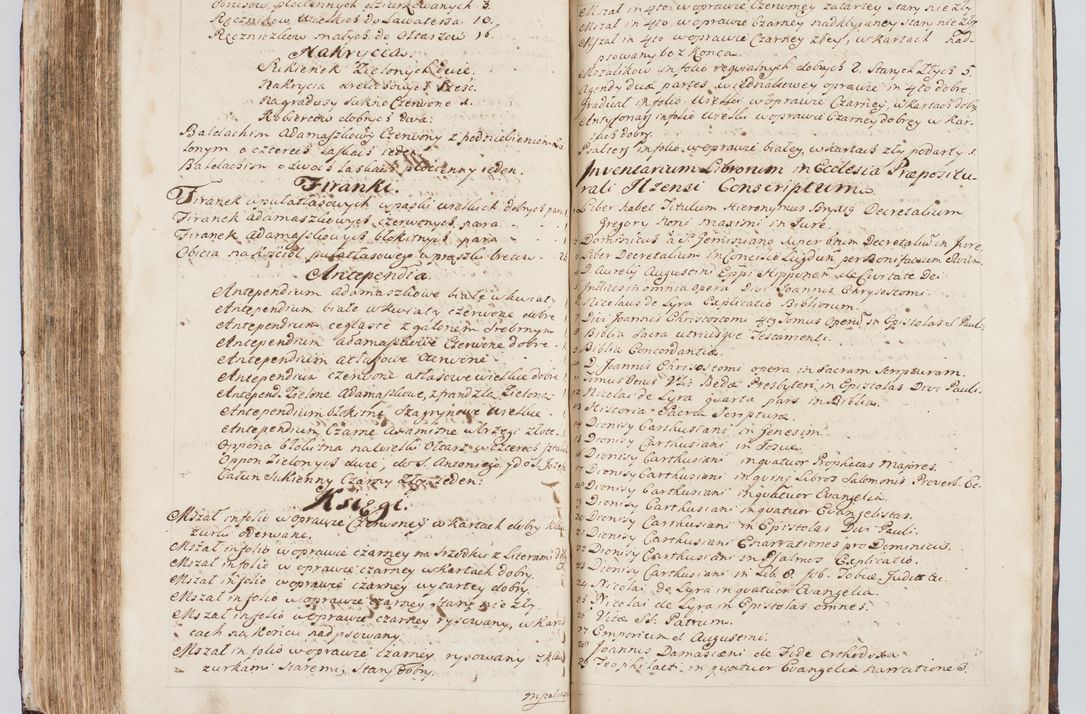 Obrusow płociennych dziurkowanych 3.
Ręcznikow wielkich do Lawaterza 10.
Ręczniczkow małych do Ołtarzow 16.
Nakrycia.
Sukienek Zielonych dwie.
Nakrycia sześć.
Na gradusy sukno Czerwone 1.
Kobiercow dobrych dwa.
Baldachim adamaszkowy Czerwony z podniebieniem
lonym o czterech laskach ieden.
Baldachim o dwoch laskach płocienny ieden.
Firanki.
Firanek wpułatłasowych w paski wielkich dobrych para 1
Firanek adamaszkowych czerwonych para 1
Firanek Adamaszkowych błękitnych para 1
Obicia na Kościoł pułatłasowego w paski bretow 28
Antependia.
Antependium adamaszkowe białe w kwiaty 1
Antependium białe w kwiaty czerwone dobre 1
Antependium ceglaste z galonem srebrnym 1
Antependium adamaszkowe Czerwone dobre 1
Antependium atłasowe czerwone 1
Antependium czerwone atłasowe wielkie dobre 1
Antepend. Zielone Adamaszkowe, z frandzlą Zieloną 1
Antependium błękitne Szagrynowe wielkie 1
Antependium Czarne Axamitne w brzegi złote 1
Oppona błękitna na wielki Ołtarz w czterech
Oppon Zielonych dwie, do S. Antoniego, y do S. Jozefa
Całun Sukienny Czarny Zły ieden.
Księgi.
Mszał in folio w oprawie Czerwoney w kartach dobry
zurą oderwane.
Mszał in folio w oprawie czarney na srzodku z Literami
Mszał in folio w oprawie czarney w kartach dobry.
Mszał in folio w oprawie czarney wytartey dobry.
Mszał in folio w oprawie czarney stary nie zły.
Mszał in folio w oprawie czarney rysowany, w kar
tach na końcu nadpsowany
Mszał in folio w oprawie czarney rysowany z kla
zurkami staremi, stary dobry.
Mszał in 4to w oprawie Czerwoney zatartey stary nie zły
Mszał in 4to w oprawie Czarney nadkłoianey stary nie zły
Mszał in 4to w oprawie Czarney złey, w kartach nad
psowany bez końca.
Mszalikow in folio requialnych dobrych 2. starych Złych 5.
Agendy duæ partes w iednakowey oprawie in 4to dobre.
Gradual in folio Wielki w oprawie Czarney, w kartach dobry
Antyfonarz in folio wielki w oprawie Czarney dobrey w kar
tach dobry.
Psałterz in folio w oprawie białey, w kartach zły podarty 1
Inventarium Librorum in Ecclesia Præpositu
rali Ilzensi Conscriptum.
1 Liber habet Titulum Hieronymus Decretalium
Gregory Noni maximi in Jure.
2 Dominicus a S. Geminiano super 6tum Decretaliū in Jure.
3 Liber Decretalium in Concilio Lugduń per Bonifacium
4 D. Aurely Augustini Eppi Hipponeń de Civitate Dei
5 Indices in omnia opera Divi Joannis Chrysostomi.
6 Nicolaus de Lyra Explicatio Bibliorum.
7 Divi Joannis Christostomi 4tg Tomus Operū in Epistolas d. Pauli
8 Biblia Sacra utriusque Testamenti.
9 Biblia Concordantiæ.
10 D. Joannis Chrisostomi opera in Sacram Scripturam.
11 Tomus Bedæ Presbyteri in Epistolas Divi Pauli.
12 Nicolai de Lyra quarta pars in Biblia.
13 Historia Sacræ Scripturæ.
14 Dionisy Carthusiani in Genesim.
15 Dionisy Carthusiani in Josue.
16 Dionisy Carthusiani in quatuor Prophetas Majores.
17 Dionisy Carthusiani in quinq Libros Salomonis Proverb. Ec.
18 Dionisy Carthusiani in quatuor Evangelia.
19 Dionisy Carthusiani in quatuor Evangelistas.
20 Dionisy Carthusiani in Epistolas Divi Pauli.
21 Dionisy Carthusiani Enarrationes pro Dominicis.
22 Dionisy Carthusiani in Psalmos Explicatio.
23 Dionisy Carthusiani in Lib. Job. Tobiæ Judith &c.
24 Nicolai de Lyra in quatuor Evangelia.
25 Nicolai de Lyra in Epistolas omnes.
26 Vitæ SS. Patrum.
27 Emporium d. Augustini.
28 Joannis Damasceni de Fide Orthodoxa
29 Teophilacti in quatuor Evangelia Narrationes.